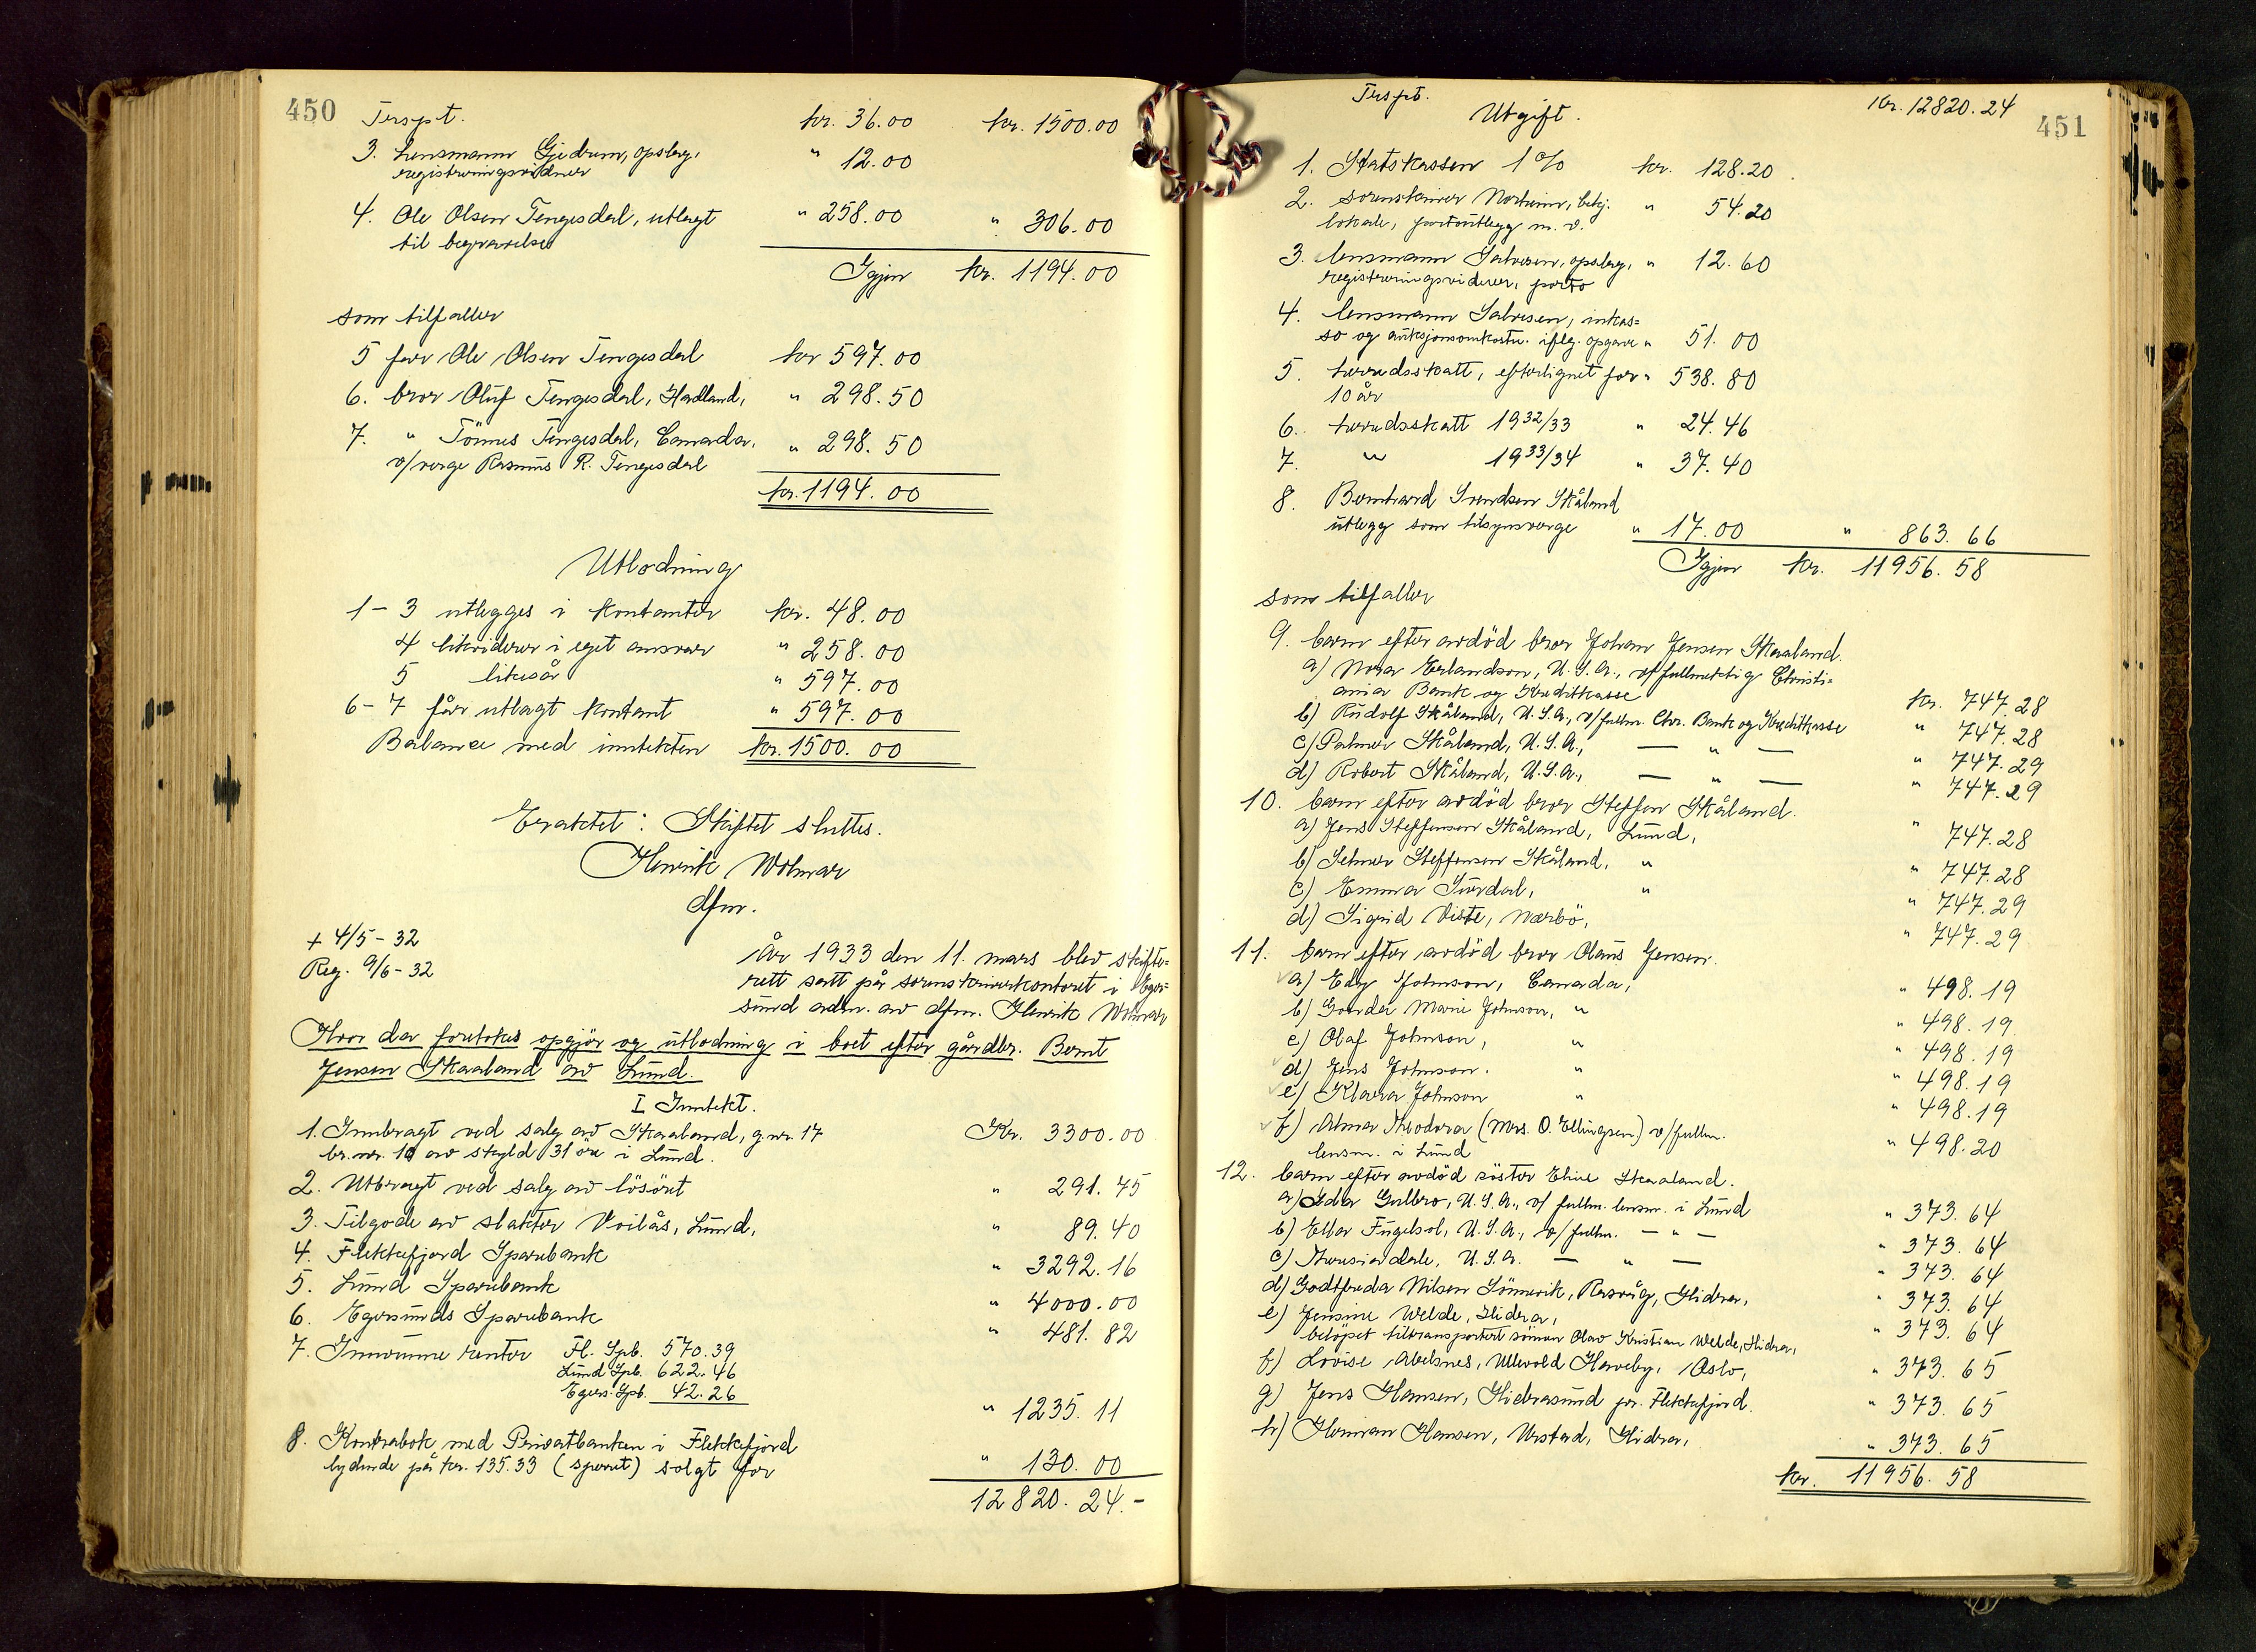 450
Trspt. kr. 36.00 kr. 1500.00
3. Lensmann Gjedrem, opslag, " 12.00
registreringsvidner
4. Ole Olsen Tengesdal, utlagt " 258.00 " 306.00
til begravelse
Igjen kr. 1194.00
som tilfaller
5 far Ole Olsen Tengesdal kr 597.00
6. bror Oluf Tengesdal, Hadland, " 298.50
7. " Tönnes Tengesdal, Canada, " 298.50
v/verge Rasmus R. Tengesdal
kr. 1194.00
Utlodning
1 – 3 utlegges i kontanter kr. 48.00
4 likviderer i eget ansvar " 258.00
5 likeså " 597.00
6 – 7 får utlagt kontant " 597.00
Balance med inntekten kr. 1500.00
Eraktet: Skiftet sluttes.
Henrik Wolmar
dfm.
+ 4/5 – 32
Reg. 9/6 – 32
År 1933 den 11. mars blev skifte=
rett satt på sorenskriverkontoret i Eger=
sund adm. av dfm. Henrik Wolmar
Hvor da foretokes opgjör og utlodning i boet efter gårdbr. Bernt
Jensen Skaaland av Lund.
I Inntekt.
1. Innbragt ved salg av Skaaland, g.nr. 17 Kr. 3300.00
br.nr. 10 av skyld 31 öre i Lund.
2. Utbragt ved salg av lösöret " 291.45
3. Tilgode av slakter Voilås, Lund, " 89.40
4. Flekkefjord Sparebank " 3292.16
5. Lund Sparebank " 4000.00
6. Egersunds Sparebank " 481.82
7. Innvunne renter Fl. Spb. 570.39
Lund Spb. 622.46
Egers. Spb. 42.26
" 1235.11
8. Kontrabok med Privatbanken i Flekkefjord
lydende på kr. 135.33 (sperret) solgt for " 130.00
12820.24.-
451
Trspt. kr. 12820.24
Utgift.
1. Statskassen 1 % kr. 128.20
2. sorenskriver Norheim, bekj. " 54.20
lokale, portoutlegg m. v.
3. lensmann Salvesen, opslag, " 12.60
registreringsvidner, porto
4. lensmann Salvesen, inkas=
so og auksjonsomkostn. iflg. opgave " 51.00
5. herredsskatt, efterlignet for " 538.80
10 år
6. herredsskatt 1932/33 " 24.46
7. " 1933/34 " 37.40
8. Bernhard Svendsen Skåland
utlegg som tilsynsverge " 17.00 " 863.66
Igjen kr. 11956.58
som tilfaller
9. barn efter avdöd bror Johan Jensen Skaaland.
a) Nora Erlandson, U.S.A., v/fullmektig Christi=
ania Bank og Kreditkasse kr. 747.28
b) Rudolf Skåland, U.S.A., v/fullm. Chr. Bank og Kreditkasse " 747.28
c) Palmer Skåland, U.S.A., — " — " 747.29
d) Robert Skåland, U.S.A., — " — " 747.29
10. barn efter avdöd bror Steffen Skåland.
a) Jens Steffensen Skåland, Lund, " 747.28
b) Selmer Steffensen Skåland, " " 747.28
c) Emma Surdal, " " 747.29
d) Sigrid Viste, Nærbö, " 747.29
11. barn efter avdöd bror Olaus Jensen.
a) Edy Johnson, Canada, " 498.19
b) Gonda Marie Johnson, " " 498.19
c) Olaf Johnson, " " 498.19
d) Jens Johnson. " " 498.19
e) Klara Johnson " " 498.19
f) Alma Theodora (Mrs. O. Ellingsen) v/fullm.
lensm. i Lund " 498.20
12. barn efter avdöd söster Eline Skaaland.
a) Ida Gulbro, U.S.A., v/ fullm. lensm. i Lund " 373.64
b) Ella Fugelsol, U.S.A., v/ fullm. — " — " 373.64
c) Theresia Dale, U.S.A. — " — " 373.64
d) Godtfreda Nilsen Sünnvik, Rasvåg, Hidra, " 373.64
e) Jensine Welde, Hidra, " 373.64
belöpet tiltransportert sönnen Olav Kristian Welde, Hidra,
f) Lovise Abelsnes, Ullevold Haveby, Oslo, " 373.65
g) Jens Hansen, Hidrasund pr. Flekkefjord. " 373.65
h) Herman Hansen, Urstad, Hidra, " 373.65
kr. 11956.58